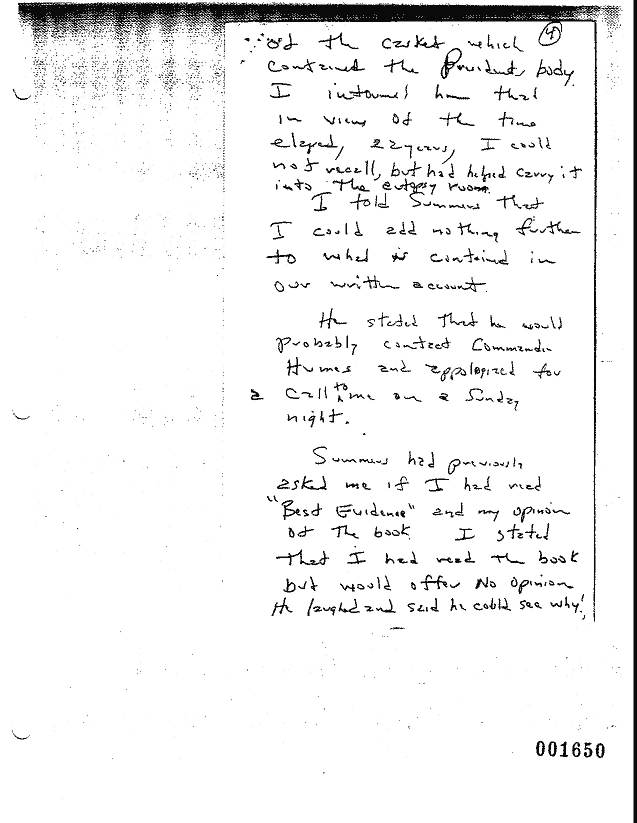 4
of the casket which
contained the President's body.
I informed him that
in view of the time
elapsed, 22 years, I could
not recall, but had helped carry it
into the autopsy room.
I told Summers that
I could add nothing further
to what is contained in
our written account.
He stated that he would
probably contact Commander
Humes and appologized for
a call to me on a Sunday
night.
Summers had previously
asked me if I had read
"Best Evidence" and my opinion
of the book. I stated
that I had read the book
but would offer No opinion
He laughed and said he could see why!
001650